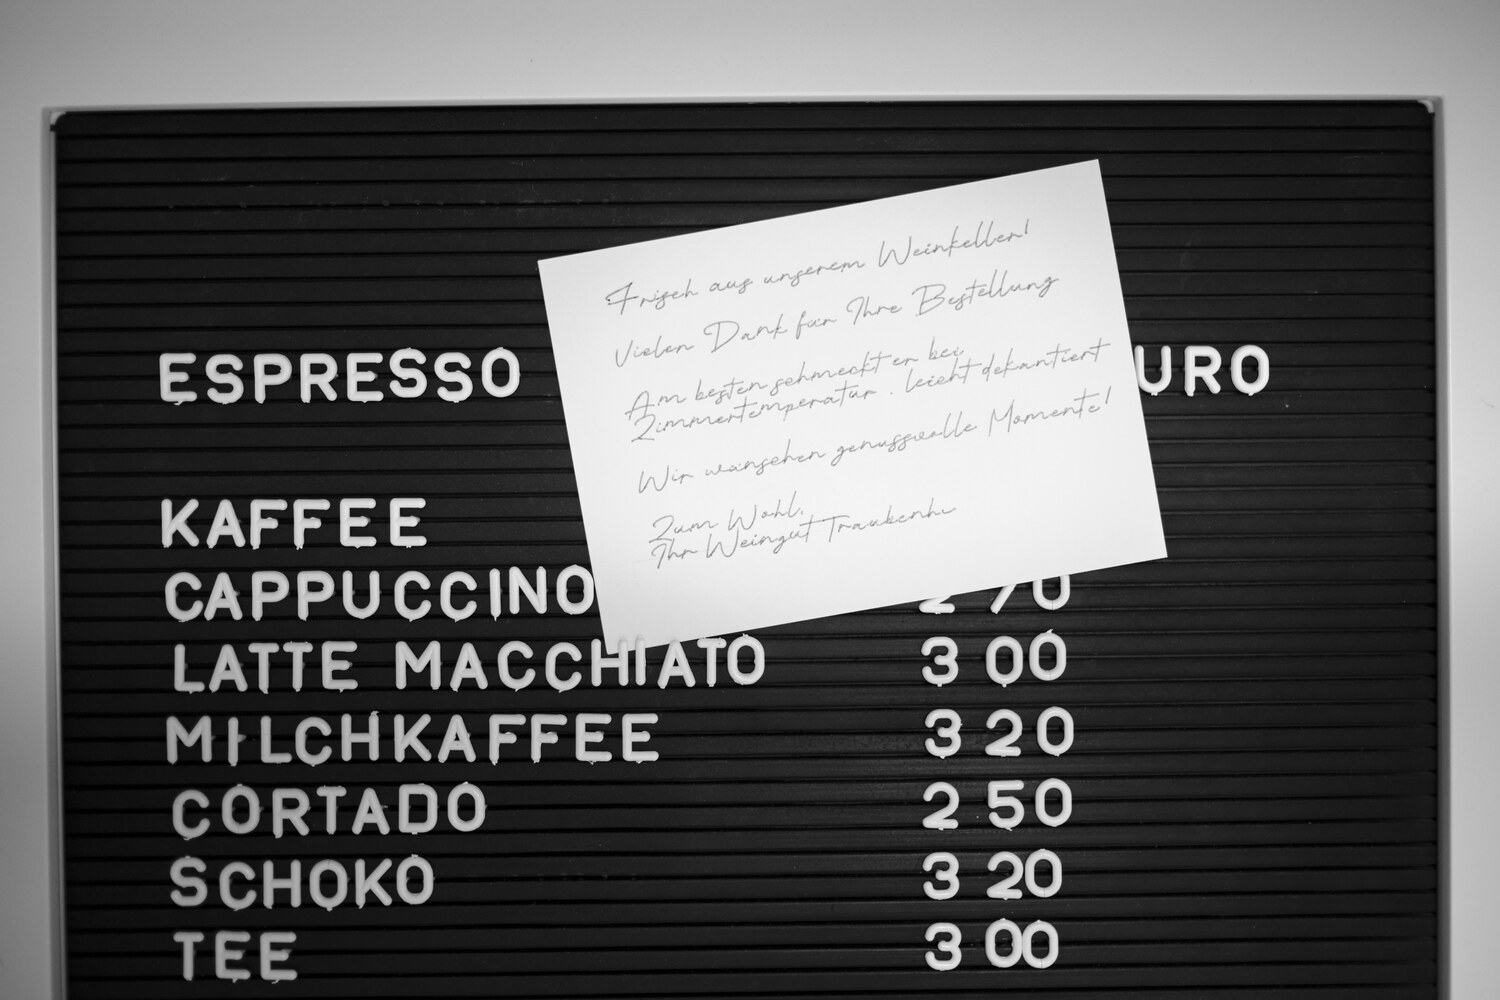 Frisch aus unserem Weinkeller!
Vielen Dank für Ihre Bestellung
Am besten schmeckt er bei
Zimmertemperatur. leicht dekantiert
Wir wünschen genussvolle Momente!
Zum Wohl,
Ihr Weingut
ESPRESSO URO
KAFFEE
CAPPUCCINO 2 70
LATTE MACCHIATO 3 00
MILCHKAFFEE 3 20
CORTADO 2 50
SCHOKO 3 20
TEE 3 00